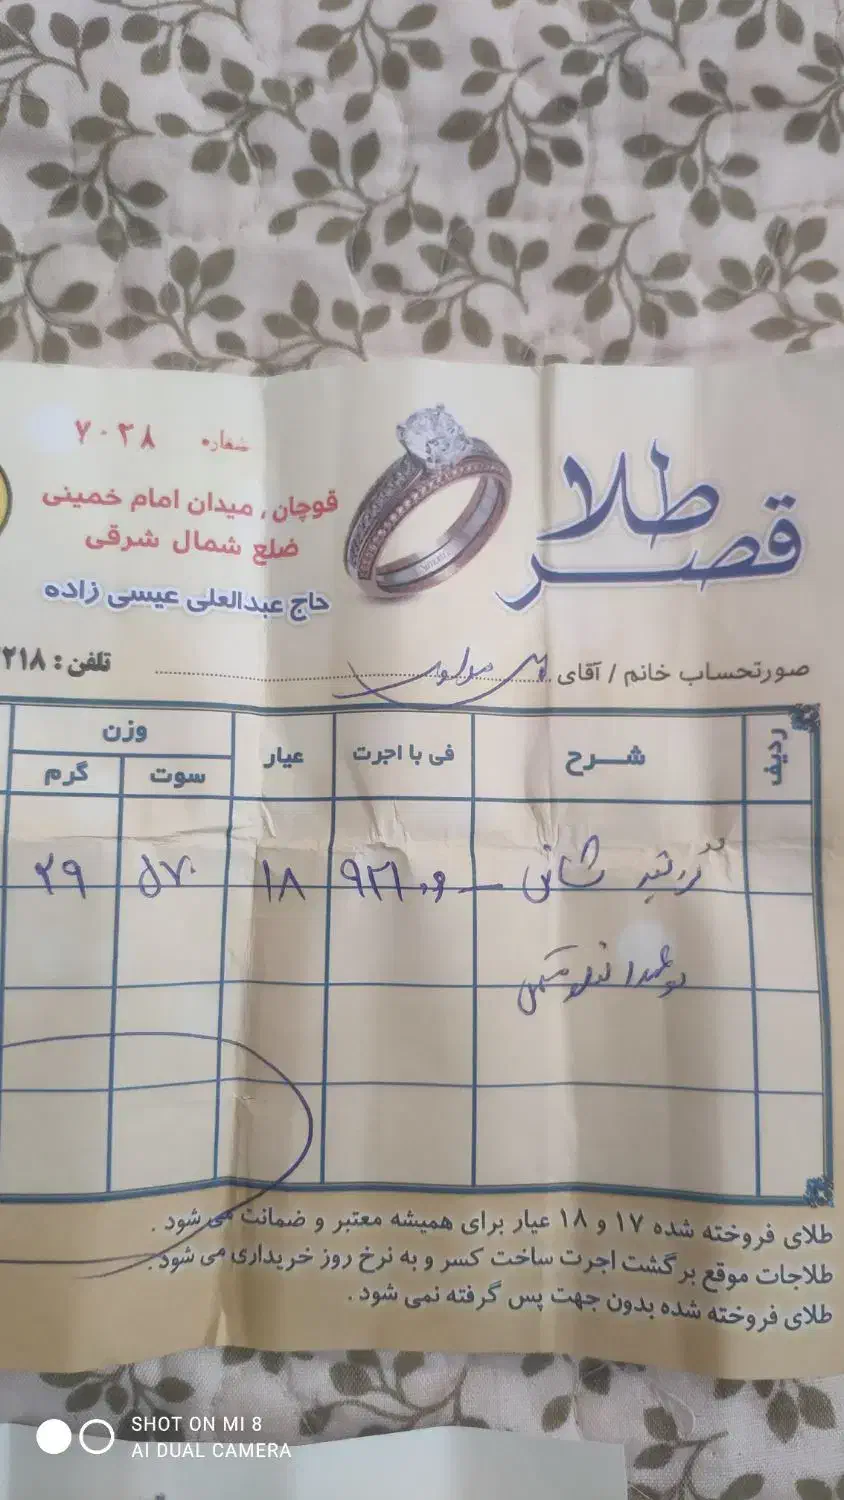 قصر طلا
شماره ۷۰۲۸
قوچان، میدان امام خمینی
ضلع شمال شرقی
حاج عبدالعلی عیسی زاده
تلفن : ۲۱۸
صورتحساب خانم / آقای
ردیف شــرح فی با اجرت عیار وزن
سوت گرم
۱۸ ۵۷۰ ۲۹
طلای فروخته شده ۱۷ و ۱۸ عیار برای همیشه معتبر و ضمانت می شود .
طلاجات موقع برگشت اجرت ساخت کسر و به نرخ روز خریداری می شود .
طلای فروخته شده بدون جهت پس گرفته نمی شود .
SHOT ON MI 8
AI DUAL CAMERA